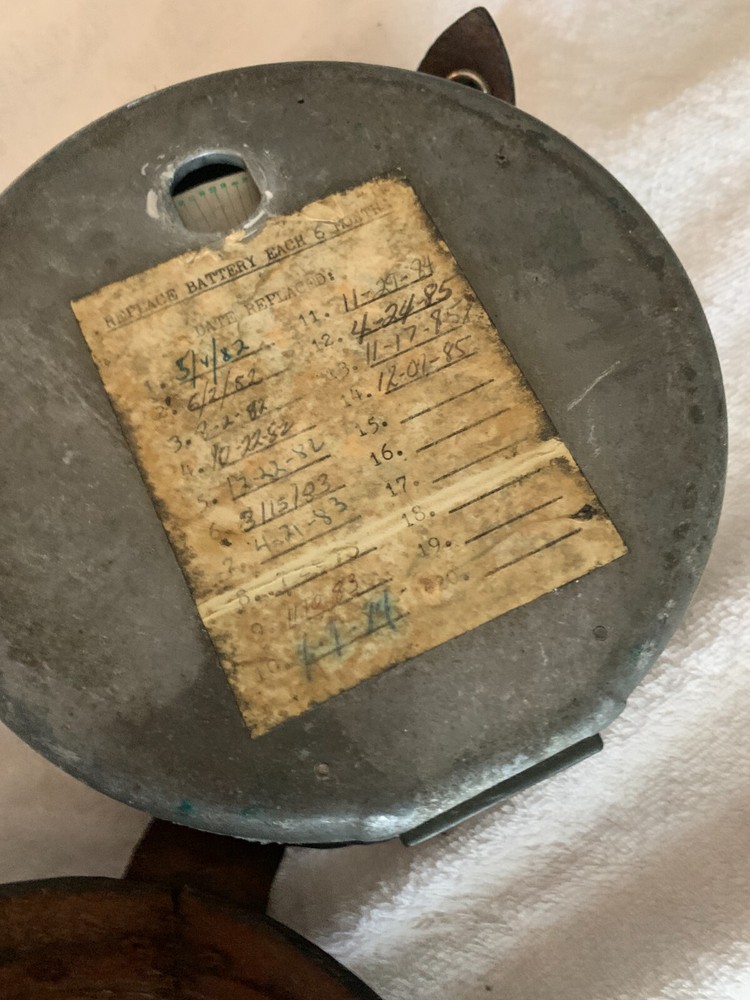 REPLACE BATTERY EACH 6 MONTHS
DATE REPLACED:
1. 5/4/82
2. 6/2/82
3. 8-2-82
4. 10-22-82
5. 12-22-82
6. 3/15/83
7. 4-21-83
8.
9. 83
10. 84
11. 11-29-84
12. 4-24-85
13. 11-17-85
14. 12-01-85
15.
16.
17.
18.
19.
20.